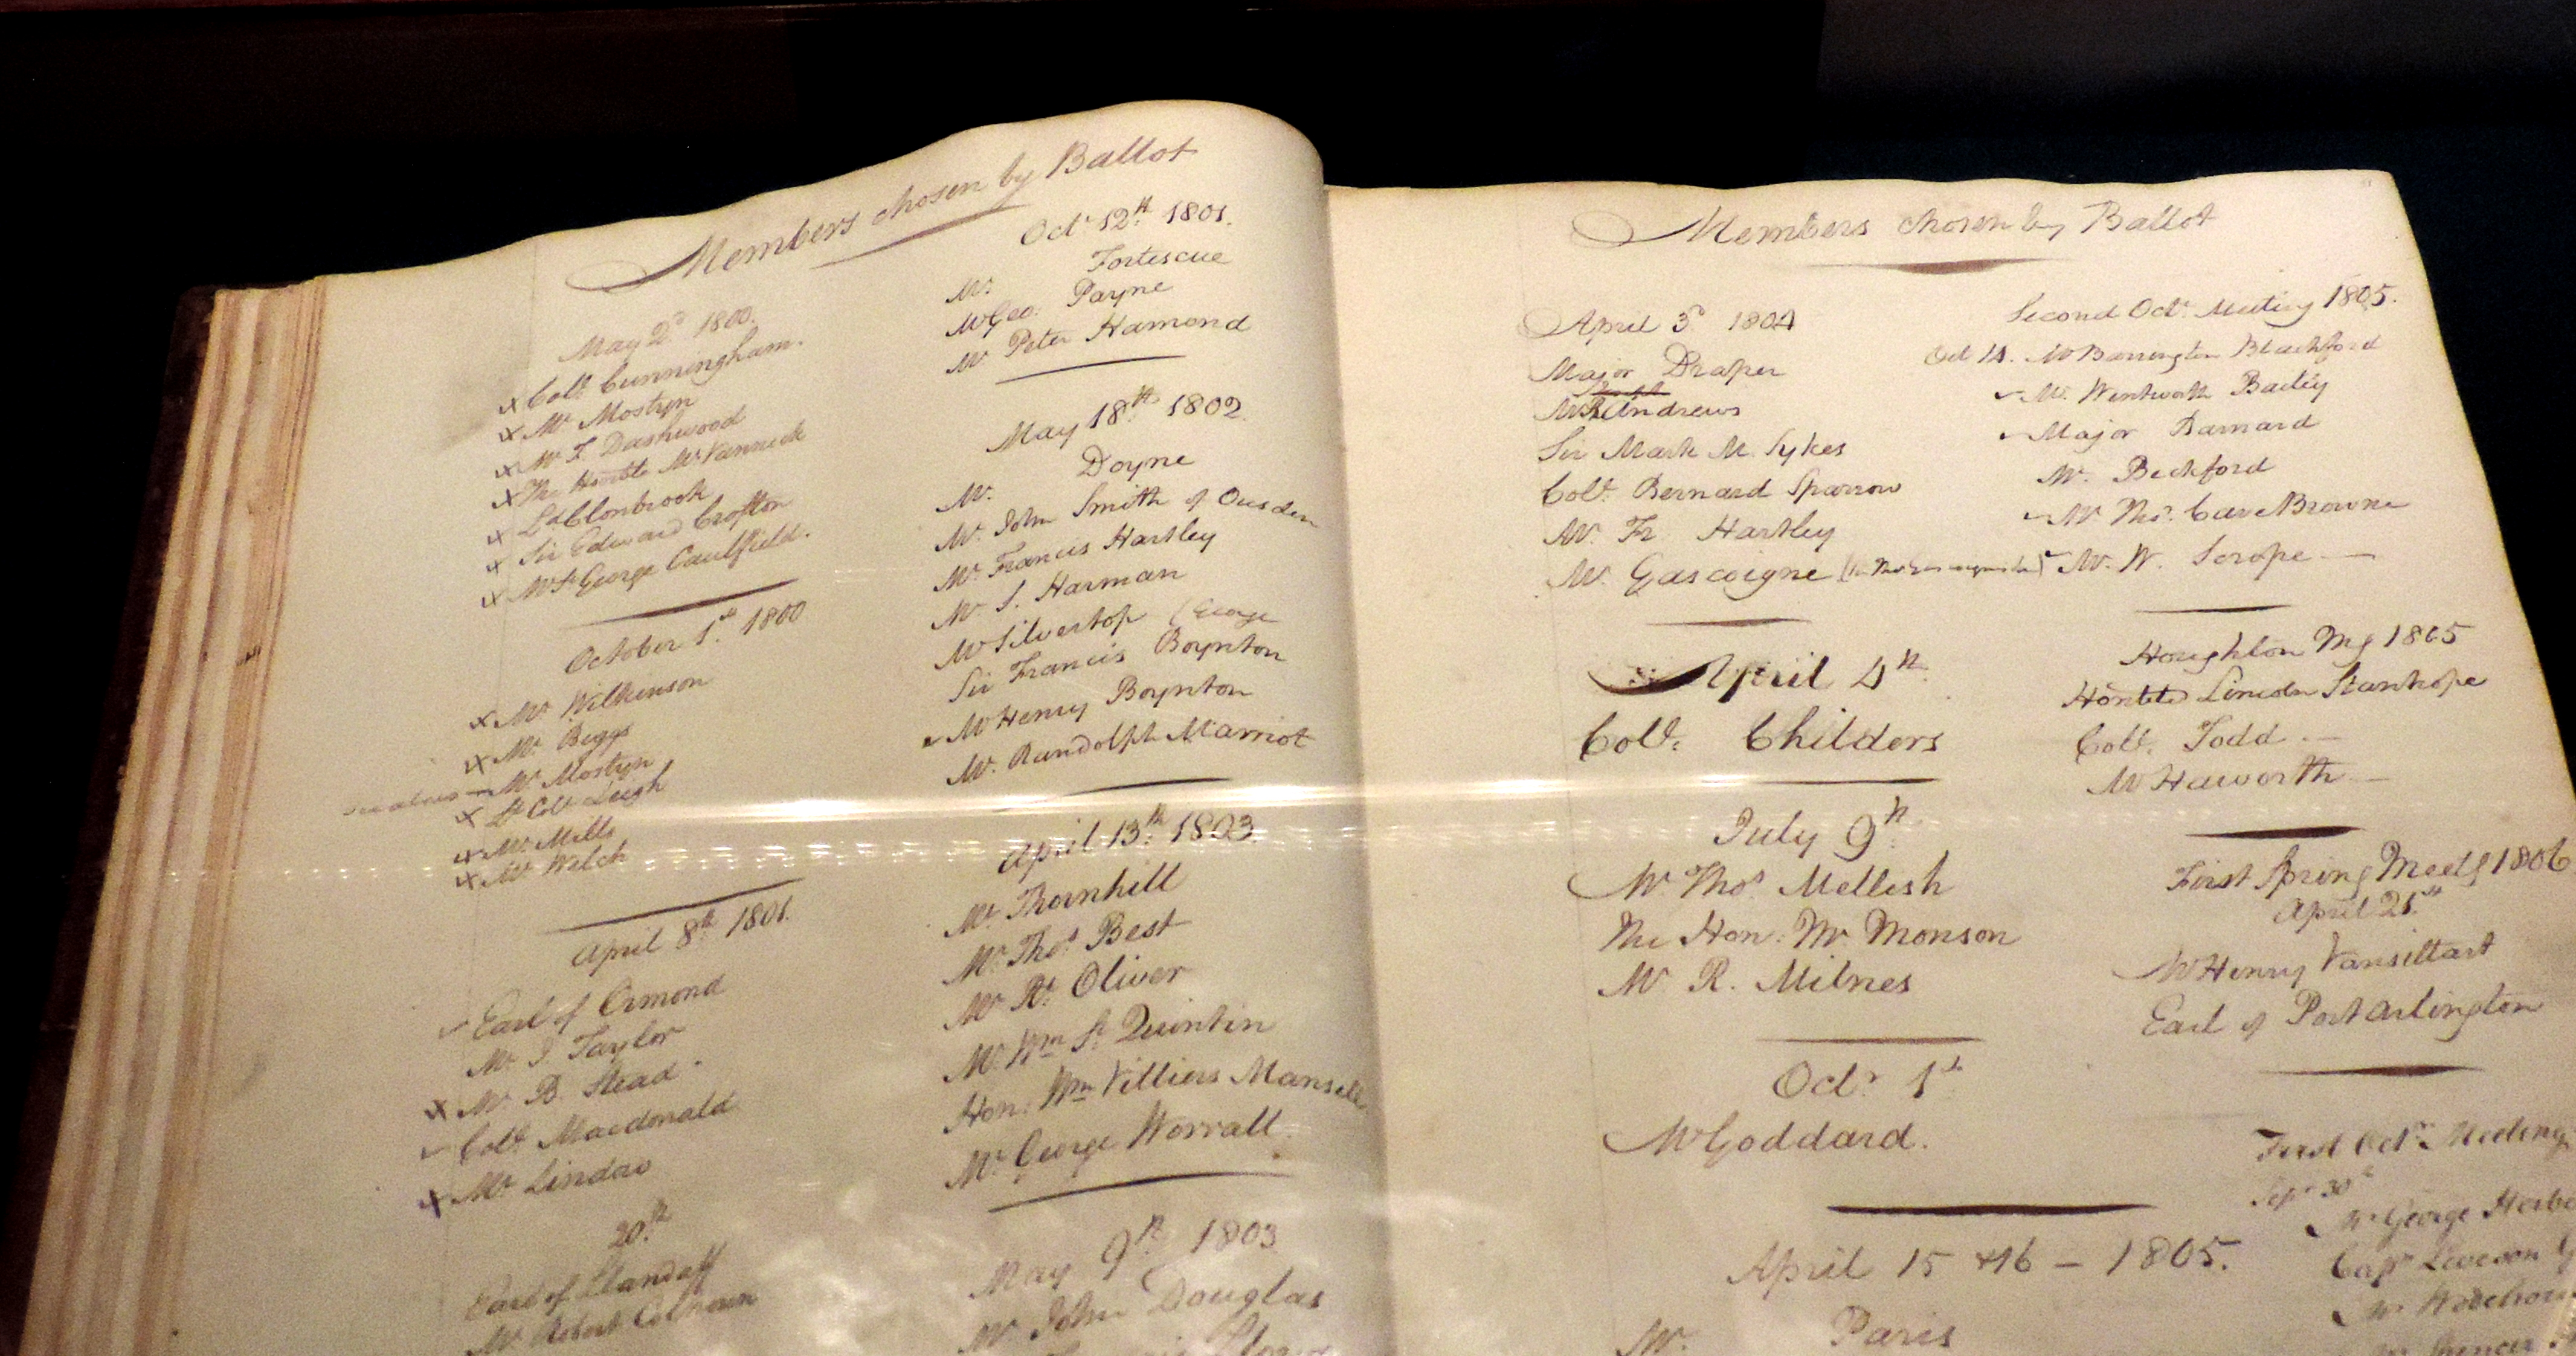 Members chosen by Ballot
May 2d 1800.
Coll. Cunningham.
Mr. Mostyn
Mr. F. Dashwood
The Honble Mr Vanneck
Ld Clonbrook
Sir Edward Crofton
Mr St George Caulfield.
October 1st 1800
Mr. Wilkinson
Mr. Biggs
Mr. Mostyn
Lt Coll Leigh
Mr. Mills
Mr. Welch
April 8th 1801.
Earl of Ormond
Mr. J Taylor
Mr. B. Stead.
Coll. Macdonald
Mr. Lindow
20th
Earl of Llandaff
Mr. Robert Colhoun
Octr 12th 1801.
Mr. Fortescue
Mr Geo. Payne
Mr. Peter Hamond
May 18th 1802.
Mr. Doyne
Mr. John Smith of Ousden
Mr. Francis Hartley
Mr. J. Harman
Mr Silvertop (George
Sir Francis Boynton
Mr Henry Boynton
Mr. Randolph Marriot
April 13th 1803.
Mr. Thornhill
Mr. Thos Best
Mr. Rt. Oliver
Mr. Wm St Quintin
Hon: Wm Villiers Mansell
Mr. George Worrall.
May 9th 1803
Mr. John Douglas
Members chosen by Ballot
April 3d 1804
Major Draper
Mr R Andrews
Sir Mark M. Sykes
Coll. Bernard Sparrow
Mr. Fr. Hartley
Mr. Gascoigne
April 4th
Coll. Childers
July 9th
Mr Thos Mellish
The Hon: Mr. Monson
Mr. R. Milnes
Octr 1st
Mr Goddard.
April 15 & 16 – 1805.
Mr. Paris
Second Octr Meeting 1805.
Oct 14. Mr Barrington Blachford
Mr. Wentworth Bailey
Major Barnard
Mr. Beckford
Mr. Thos. Cave Browne
Mr. W. Scrope —
Houghton Mg 1805
Honble Lincoln Stanhope
Coll. Todd —
Mr Haworth —
First Spring Meetg 1806
April 21st
Mr Henry Vansittart
Earl of Portarlington
First Octr Meeting
Sepr 30th
Mr George
Capt Leveson
Mr
Mr Spencer